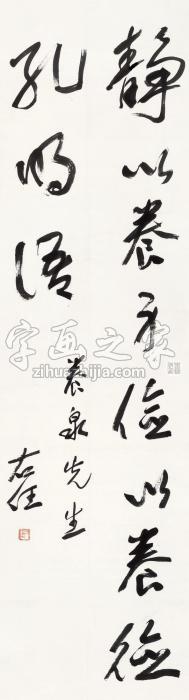 靜以養身儉以養德
孔明語
養泉先生
右任
字画之家
zihuazhijia.com